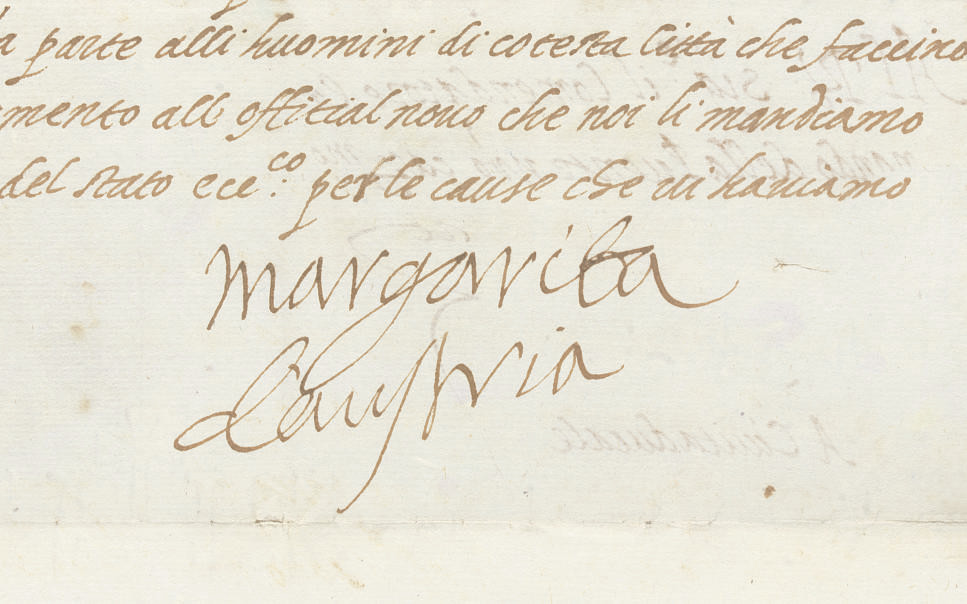 a parte alli huomini di cotesta Città che faccino
mento all offitial novo che noi li mandiamo
del stato ecc.co per le cause che vi haviamo
Margarita
d'austria